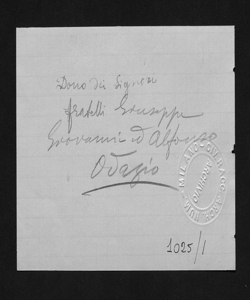 Dono dei Signori
fratelli Giuseppe
Giovanni ed Alfonso
Odazio
1025/1